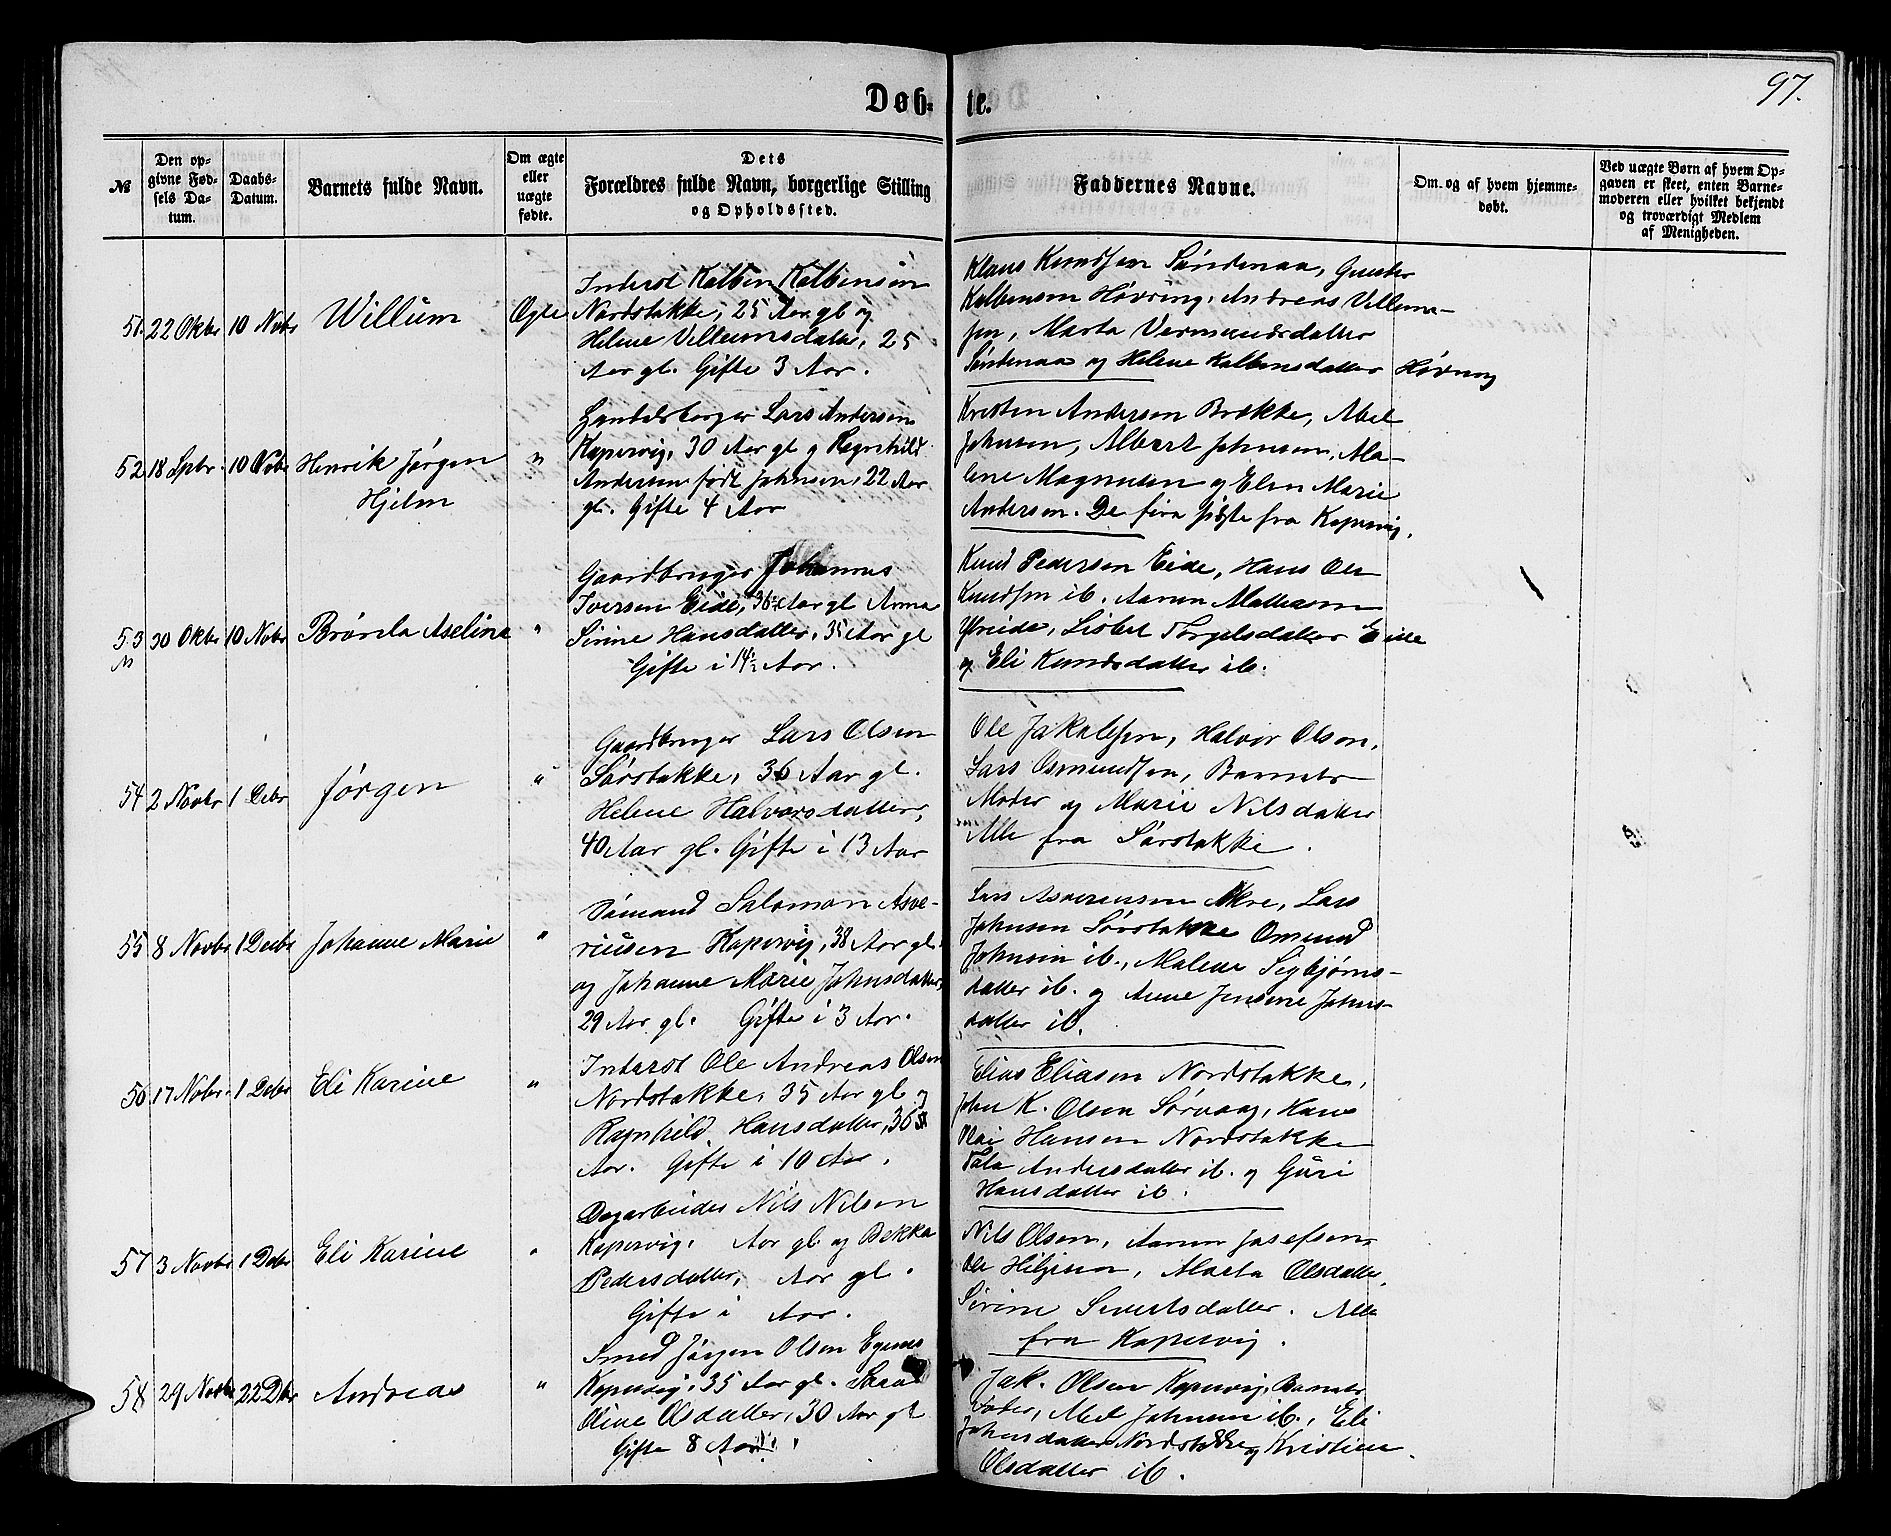 97.
Døb- te.
№
Den opgivne Fødsels Datum.
Daabs-Datum.
Barnets fulde Navn.
Om ægte eller uægte fødte.
Dets Forældres fulde Navn, borgerlige Stilling og Opholdssted.
Faddernes Navne.
Om og af hvem hjemmedøbt.
Ved uægte Børn af hvem Opgaven er skeet, enten Barnemoderen eller hvilket bekjendt og troværdigt Medlem af Menigheden.
51. 22 Oktbr 10 Novbr Willum Ægte
Inderst Kolben Kolbensen
Nordstokke, 25 Aar gl og
Helene Villumsdatter, 25
Aar gl. Gifte 3 Aar.
Klaus Knudsen Søndenaa,
Kolbensen Høvring, Andreas Villum-
sen, Marta Vermundsdatter
Søndenaa og Helene Kolbensdatter Høvring
52 18 Spbr. 10 Nobr Henrik Jørgen
Hjelm "
Lars Andersen
Kopervig, 30 Aar gl og Ragnhild
Andersen født Johnsen, 22 Aar
gl. Gifte 4 Aar
Kristen Andersen Brække, Abel
Johnsen, Albert Johnsen, Ma-
lene Magnusen og Elen Marie
Andersen. De fira sidste fra Kopervig.
53 30 Oktbr 10 Nobr Aseline "
Gaardbruger Johannes
Iversen Eide, 36½ Aar gl Anna
Sirine Hansdatter, 35 Aar gl
Gifte i 14½ Aar.
Knud Pedersen Eide, Hans Ole
Knudsen ib. Aamun
Lisbet Torgelsdatter Eide
og Eli Knudsdatter ib.
54 2 Novbr 1 Debr Jørgen "
Gaardbruger Lars Olsen
Sørstokke, 36 Aar gl.
Helene Halvorsdatter,
40 Aar gl. Gifte i 13 Aar
Ole Jakobsen, Halvor Olsen,
Lars Osmundsen, Barnets
Moder og Marie Nilsdatter
Alle fra Sørstokke.
55 8 Novbr 1 Decbr Johanne Marie "
Sømand Salomon Asve-
riusen Kopervig, 38 Aar gl.
og Johanne Marie Johnsdatter,
29 Aar gl. Gifte i 3 Aar.
Lars Asveriusen Akre, Lars
Johnsen Sørstokke Osmund
Johnsen ib., Malene Sigbjørns-
datter ib. og Anne Jensine Johns-
datter ib.
56 17 Novbr. 1 Debr Eli Karine "
Inderst Ole Andreas Olsen
Nordstokke, 35 Aar gl og
Ragnhild Hansdatter, 36
Aar. Gifte i 10 Aar.
Elias Eliasen Nordstokke,
John K. Olsen Sørvaag, Hans
Hansen Nordstokke
Andersdatter ib. og Guri
Hansdatter ib.
57 3 Novbr 1 Debr Eli Karine "
Dagarbeider Nils Nilsen
Kopervig, Aar gl. og Bekka
Pedersdatter, Aar gl.
Gifte i Aar.
Nils Olsen, Aamun Josefsen
Ole Marta Olsdatter,
Sirine Sivertsdatter. Alle
fra Kopervig.
58 29 Novbr 22 Dbr Andreas "
Smed Jørgen Olsen Egenes
Kopervig, 35 Aar gl. Sara
Oline Olsdatter, 30 Aar gl
Gifte 8 Aar.
Jak. Olsen Kopervig, Barnets
Fader, Abel Johnsen ib., Eli
Johnsdatter Nordstokke og Kristine
Olsdatter ib.